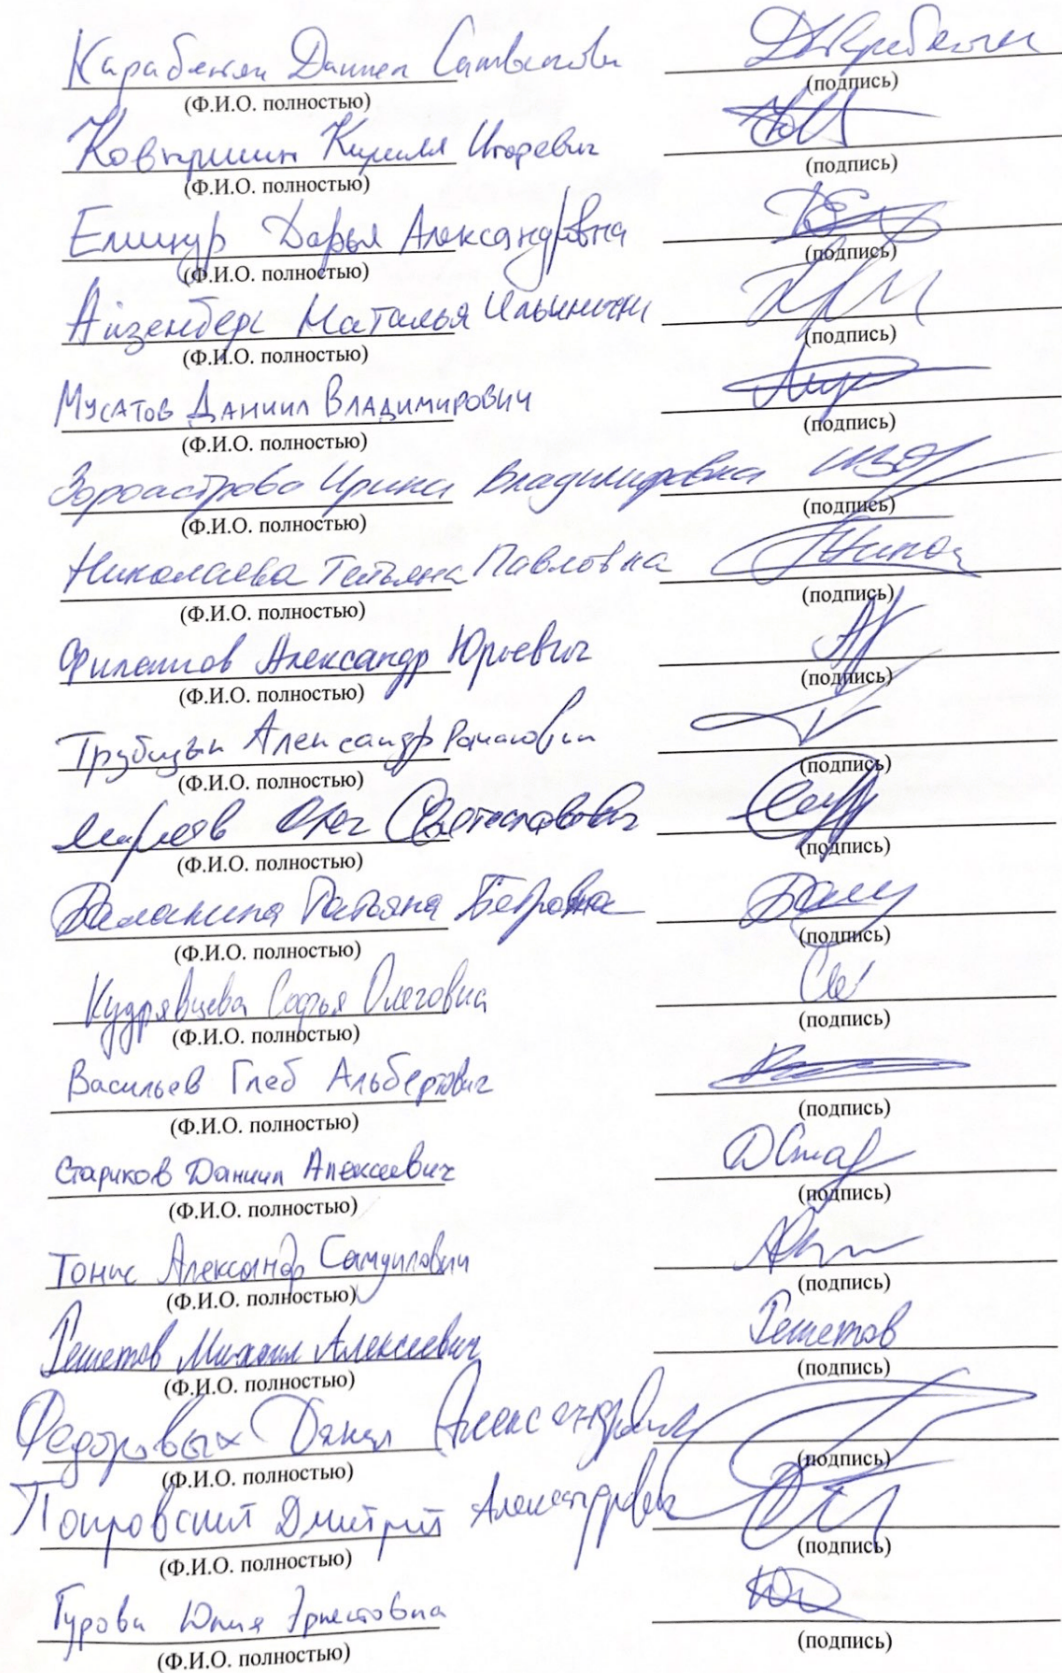 Карабекян Даниел Самвелович
(Ф.И.О. полностью) (подпись)
Ковтршин Кирилл Игоревич
(Ф.И.О. полностью) (подпись)
Елицур Дарья Александровна
(Ф.И.О. полностью) (подпись)
Айзенберг Наталья Ильинична
(Ф.И.О. полностью) (подпись)
Мусатов Даниил Владимирович
(Ф.И.О. полностью) (подпись)
Зороастрова Ирина Владимировна
(Ф.И.О. полностью) (подпись)
Николаева Татьяна Павловна
(Ф.И.О. полностью) (подпись)
Филатов Александр Юрьевич
(Ф.И.О. полностью) (подпись)
Трубицын Александр Романович
(Ф.И.О. полностью) (подпись)
Олег Святославович
(Ф.И.О. полностью) (подпись)
Балакина Татьяна Петровна
(Ф.И.О. полностью) (подпись)
Кудрявцева Софья Олеговна
(Ф.И.О. полностью) (подпись)
Васильев Глеб Альбертович
(Ф.И.О. полностью) (подпись)
Стариков Даниил Алексеевич
(Ф.И.О. полностью) (подпись)
Тонис Александр Самуилович
(Ф.И.О. полностью) (подпись)
Решетов Михаил Алексеевич Решетов
(Ф.И.О. полностью) (подпись)
Федоровых Данил Александрович
(Ф.И.О. полностью) (подпись)
Покровский Дмитрий Александрович
(Ф.И.О. полностью) (подпись)
Гурова Юлия Эрнестовна
(Ф.И.О. полностью) (подпись)